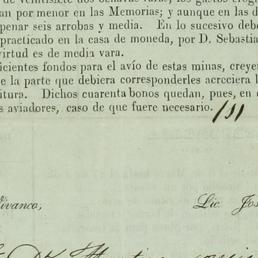 de veintisiete dos
an por menor en las Memorias; y aunque en las d
penar seis arrobas y media. En lo sucesivo debe
practicado en la casa de moneda, por D. Sebastia
virtud es de media vara.
icientes fondos para el avío de estas minas, creye
e la parte que debiera corresponderles acreciera l
itura. Dichos cuarenta bonos quedan, pues, en
s aviadores, caso de que fuere necesario.
Vivanco,
Lic. Jos